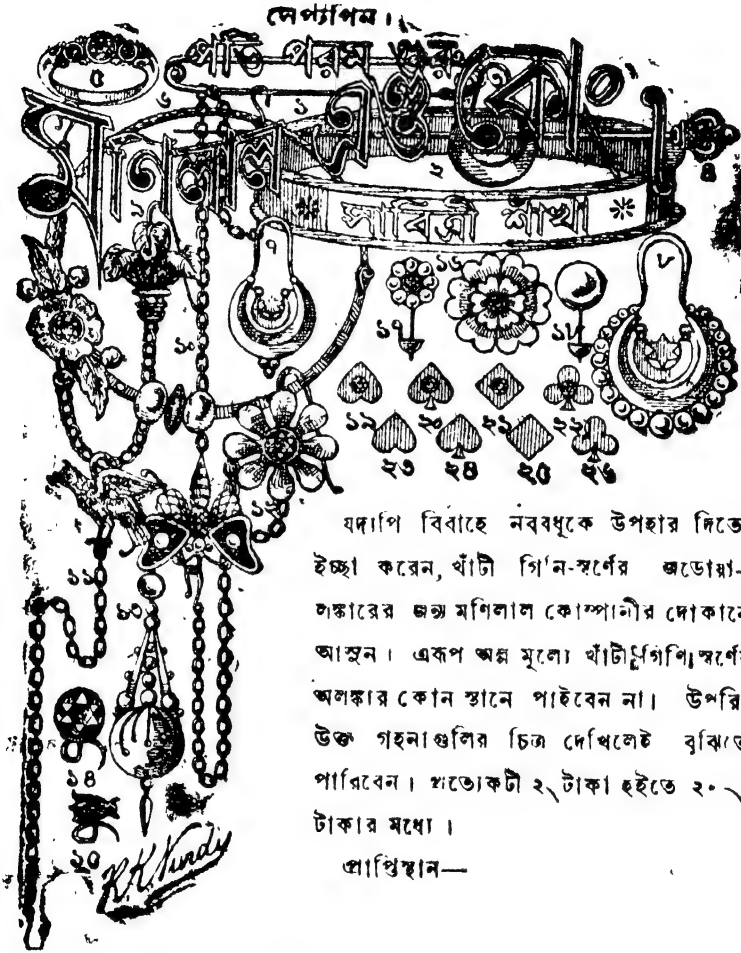 পতি পরম গুরু
মণিলাল এণ্ড কোং
সাবিত্রী শাঁখা
৫
৬
১
২
৪
৭
৮
১০
১৬
১৭
১৮
১৯ ২০ ২১ ২২
২৩ ২৪ ২৫ ২৬
১১
১৩
১৪
যদ্যপি বিবাহে নববধূকে উপহার দিতে
ইচ্ছা করেন, খাঁটী গিনি-স্বর্ণের জড়োয়া-
লঙ্কারের জন্য মণিলাল কোম্পানীর দোকানে
আসুন। এরূপ অল্প মূল্যে খাঁটী গিণি স্বর্ণের
অলঙ্কার কোন স্থানে পাইবেন না। উপরি
উক্ত গহনাগুলির চিত্র দেখিলেই বুঝিতে
পারিবেন। প্রত্যেকটী ২৲ টাকা হইতে ২০৲
টাকার মধ্যে।
প্রাপ্তিস্থান—
K.K. Nundy